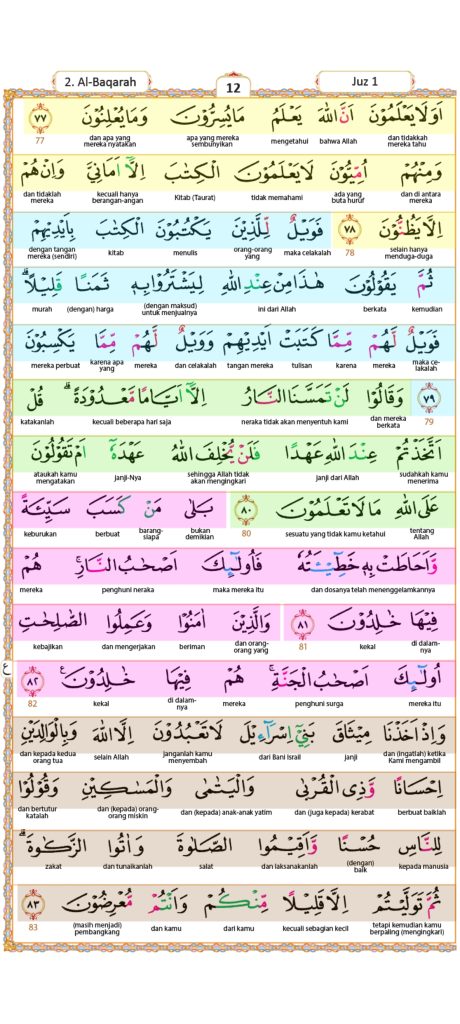 2. Al-Baqarah 12 Juz 1
اَوَلَا يَعْلَمُوْنَ اَنَّ اللّٰهَ يَعْلَمُ مَا يُسِرُّوْنَ وَمَا يُعْلِنُوْنَ ٧٧
dan tidakkah mereka tahu bahwa Allah mengetahui apa yang mereka sembunyikan dan apa yang mereka nyatakan 77
وَمِنْهُمْ اُمِّيُّوْنَ لَا يَعْلَمُوْنَ الْكِتٰبَ اِلَّآ اَمَانِيَّ وَاِنْ هُمْ
dan di antara mereka ada yang buta huruf tidak memahami Kitab (Taurat) kecuali hanya berangan-angan dan tidaklah mereka
اِلَّا يَظُنُّوْنَ ٧٨ فَوَيْلٌ لِّلَّذِيْنَ يَكْتُبُوْنَ الْكِتٰبَ بِاَيْدِيْهِمْ
selain hanya menduga-duga 78 maka celakalah orang-orang yang menulis kitab dengan tangan mereka (sendiri)
ثُمَّ يَقُوْلُوْنَ هٰذَا مِنْ عِنْدِ اللّٰهِ لِيَشْتَرُوْا بِهٖ ثَمَنًا قَلِيْلًاۗ
kemudian berkata ini dari Allah (dengan maksud) untuk menjualnya (dengan) harga murah
فَوَيْلٌ لَّهُمْ مِّمَّا كَتَبَتْ اَيْدِيْهِمْ وَوَيْلٌ لَّهُمْ مِّمَّا يَكْسِبُوْنَ
maka ce-lakalah mereka karena tulisan tangan mereka dan celakalah mereka karena apa yang mereka perbuat
٧٩ وَقَالُوْا لَنْ تَمَسَّنَا النَّارُ اِلَّآ اَيَّامًا مَّعْدُوْدَةًۗ قُلْ
79 dan mereka berkata neraka tidak akan menyentuh kami kecuali beberapa hari saja katakanlah
اَتَّخَذْتُمْ عِنْدَ اللّٰهِ عَهْدًا فَلَنْ يُّخْلِفَ اللّٰهُ عَهْدَهٗٓ اَمْ تَقُوْلُوْنَ
sudahkah kamu menerima janji dari Allah sehingga Allah tidak akan mengingkari Janji-Nya ataukah kamu mengatakan
عَلَى اللّٰهِ مَا لَا تَعْلَمُوْنَ ٨٠ بَلٰى مَنْ كَسَبَ سَيِّئَةً
tentang Allah sesuatu yang tidak kamu ketahui 80 bukan demikian barang-siapa berbuat keburukan
وَّاَحَاطَتْ بِهٖ خَطِيْۤـَٔتُهٗ فَاُولٰۤىِٕكَ اَصْحٰبُ النَّارِۚ هُمْ
dan dosanya telah menenggelamkannya maka mereka itu penghuni neraka mereka
فِيْهَا خٰلِدُوْنَ ٨١ وَالَّذِيْنَ اٰمَنُوْا وَعَمِلُوا الصّٰلِحٰتِ
di dalam-nya kekal 81 dan orang-orang yang beriman dan mengerjakan kebajikan
اُولٰۤىِٕكَ اَصْحٰبُ الْجَنَّةِۚ هُمْ فِيْهَا خٰلِدُوْنَ ࣖ ٨٢ ع
mereka itu penghuni surga mereka di dalam-nya kekal 82
وَاِذْ اَخَذْنَا مِيْثَاقَ بَنِيْٓ اِسْرَاۤءِيْلَ لَا تَعْبُدُوْنَ اِلَّا اللّٰهَ وَبِالْوَالِدَيْنِ
dan (ingatlah) ketika Kami mengambil janji dari Bani Israil janganlah kamu menyembah selain Allah dan kepada kedua orang tua
اِحْسَانًا وَّذِى الْقُرْبٰى وَالْيَتٰمٰى وَالْمَسٰكِيْنِ وَقُوْلُوْا
berbuat baiklah dan (juga kepada) kerabat dan (kepada) anak-anak yatim dan (kepada) orang-orang miskin dan bertutur katalah
لِلنَّاسِ حُسْنًا وَّاَقِيْمُوا الصَّلٰوةَ وَاٰتُوا الزَّكٰوةَۗ
kepada manusia (dengan) baik dan laksanakanlah salat dan tunaikanlah zakat
ثُمَّ تَوَلَّيْتُمْ اِلَّا قَلِيْلًا مِّنْكُمْ وَاَنْتُمْ مُّعْرِضُوْنَ ٨٣
tetapi kemudian kamu berpaling (mengingkari) kecuali sebagian kecil dari kamu dan kamu (masih menjadi) pembangkang 83